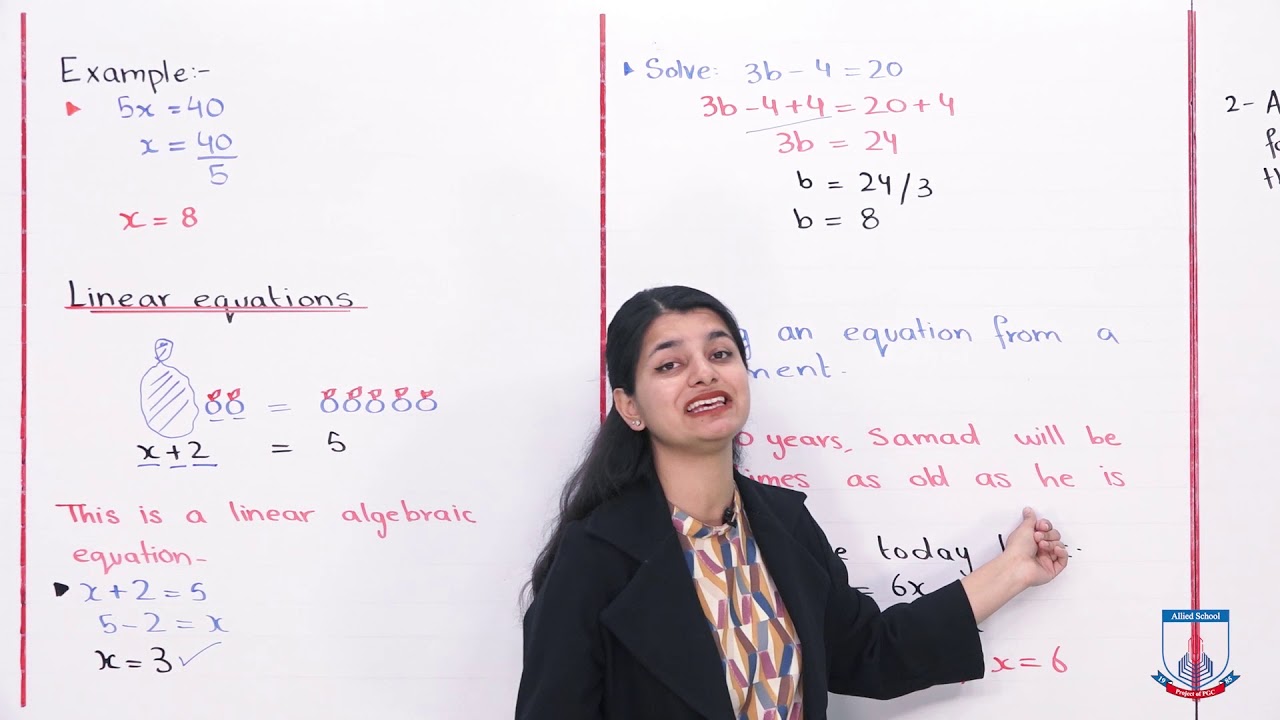 Example:-
5x = 40
x = 40
5
x = 8
Linear equations
x + 2 = 5
This is a linear algebraic
equation-
x + 2 = 5
5 - 2 = x
x = 3
Solve: 3b - 4 = 20
3b - 4 + 4 = 20 + 4
3b = 24
b = 24/3
b = 8
an equation from a
years, Samad will be
as old as he is
today
= 6x
x = 6
2- A
Allied School
19 85
Project of PGC